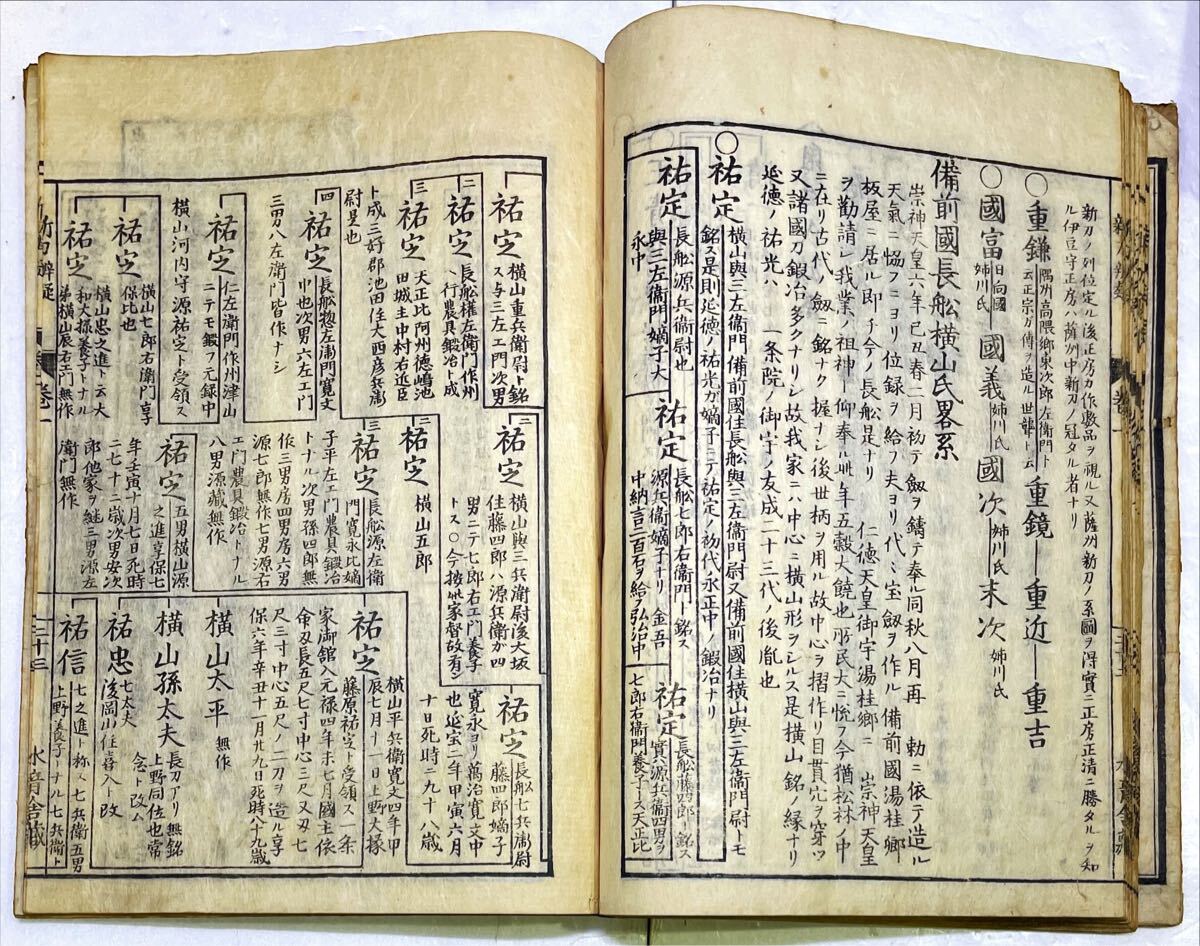 新刀ノ列位定ル後正房カ作數品ヲ視ル又薩州新刀ノ系圖ヲ得實ニ正房正清ニ勝タルヲ知
ル伊豆守正房ハ薩州中新刀ノ冠タル者ナリ
○重鎌 隅州高隈鄉東次郎左衛門ト
云正宗ガ傳ヲ造ル世襲ト云
重鏡―重近―重吉
○國富 日向國
姉川氏
國義 姉川氏 國次 姉川氏 末次 姉川氏
備前國長舩横山氏畧系
崇神天皇六年己丑春二月初テ劔ヲ鑄テ奉ル同秋八月再 勅ニ依テ造ル
天氣ニ恊フニヨリ位録ヲ給フ夫ヨリ代々宝劔ヲ作ル備前國湯桂鄉
板屋ニ居ル即チ今ノ長舩是ナリ 仁德天皇御宇湯桂鄉ニ 崇神天皇
ヲ勸請シ我業ノ祖神ト仰奉ル此年五穀大饒也所民大ニ悦フ今猶松林ノ中
ニ在リ古代ノ劔ニ銘ナク握ナシ後世柄ヲ用ル故中心ヲ摺作リ目貫穴ヲ穿ツ
又諸國刀鍛冶多クナリシ故我家ニハ中心ニ横山形ヲシルス是横山銘ノ縁ナリ
延德ノ祐光ハ 一条院ノ御宇ノ友成二十三代ノ後胤也
○祐定 横山與三左衞門備前國住長舩與三左衞門尉又備前國住横山與三左衞門尉トモ
銘ス是則延德ノ祐光ガ嫡子ニテ祐定ノ初代永正中ノ鍛冶ナリ
祐定 長舩源兵衞尉也
與三左衞門嫡子大
永中
祐定 長舩七郎右衞門ト銘ス
源兵衞嫡子ナリ 金吾
中納言二百石ヲ給フ弘治中
祐定 長舩藤四郎ト銘ス
實ハ源兵衞四男ヲ
七郎右衞門養子トス天正比
二 祐定 横山重兵衛尉ト銘
ス与三左エ門次男
二 祐定 長舩權左衞門作州
ヘ行農具鍛冶ト成
三 祐定 天正比阿州徳嶋池
田城主中村右近臣
ト成三好郡池田住大西彦兵衞
尉是也
四 祐定 長舩惣左衞門寛文
中也次男六左エ門
三男八左衞門皆作ナシ
祐定 仁左衞門作州津山
ニテモ鍛フ元録中
横山河内守源祐定ト受領ス
祐定 横山七郎右衞門享
保比也
祐定 横山忠之進ト云大
和大掾養子トナル
弟横山辰右エ門無作
二 祐定 横山與三兵衛尉後大坂
住藤四郎ハ源兵衞が四
男ニテ七郎右エ門養子
トス○今按此家督故有シ
二 祐定 横山五郎
三 祐定 長舩源左衛
門寛永比嫡
子平左エ門農具鍛冶
トナル次男孫四郎無
作三男房四男房六男
源七郎無作七男源右
エ門農具鍛冶トナル
八男源藏無作
祐定 五男横山源
之進享保七
年壬寅十月七日死時
二七十二歳次男安次
郎他家ヲ継三男源左
衞門無作
祐定 長舩七兵衞尉
藤四郎嫡子
寛永ヨリ萬治寛文中
也延宝二年甲寅六月
十日死時ニ九十八歳
祐定 横山平兵衞寛文四年甲
辰七月十一日上野大掾
藤原祐定ト受領ス一条
家御舘入元禄四年未七月國主依
命刄長五尺七寸中心三尺又刄七
尺三寸中心五尺ノ二刀ヲ造ル享
保六年辛丑十一月九日死時八十九歳
横山太平 無作
横山孫太夫 長刀アリ無銘
上野同住也常
念ト改ム
祐忠 七太夫
後岡山住喜入ト改
祐信 七之進ト称ス七兵衞五男
上野養子トナル七兵衞ト
新刀辨疑
卷一
二十三
水音舍藏